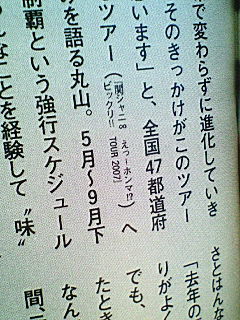 で変わらずに進化していき
そのきっかけがこのツアー
います」と、全国47都道府
ツアー(『関ジャニ∞ えっ!ホンマ!?
ビックリ!! TOUR 2007』)へ
を語る丸山。5月〜9月下
制覇という強行スケジュール
んなことを経験して〝味〟
さとはんな
「去年の
りがよく
でも、
たとき
なん
間、